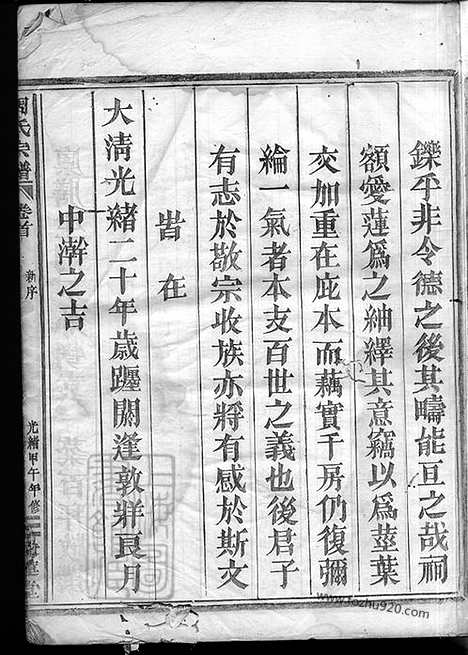 鑠乎非令德之後其疇能亘之哉祠
額愛蓮為之紬繹其意竊以為莖葉
交加重在庇本而藕實千房仍復彌
綸一氣者本支百世之義也後君子
有志於敬宗收族亦將有感於斯文
旹在
大清光緒二十年歲躔閼逢敦牂良月
中澣之吉
周氏宗譜
卷首
新序
光緒甲午年修
www.fozhu920.com